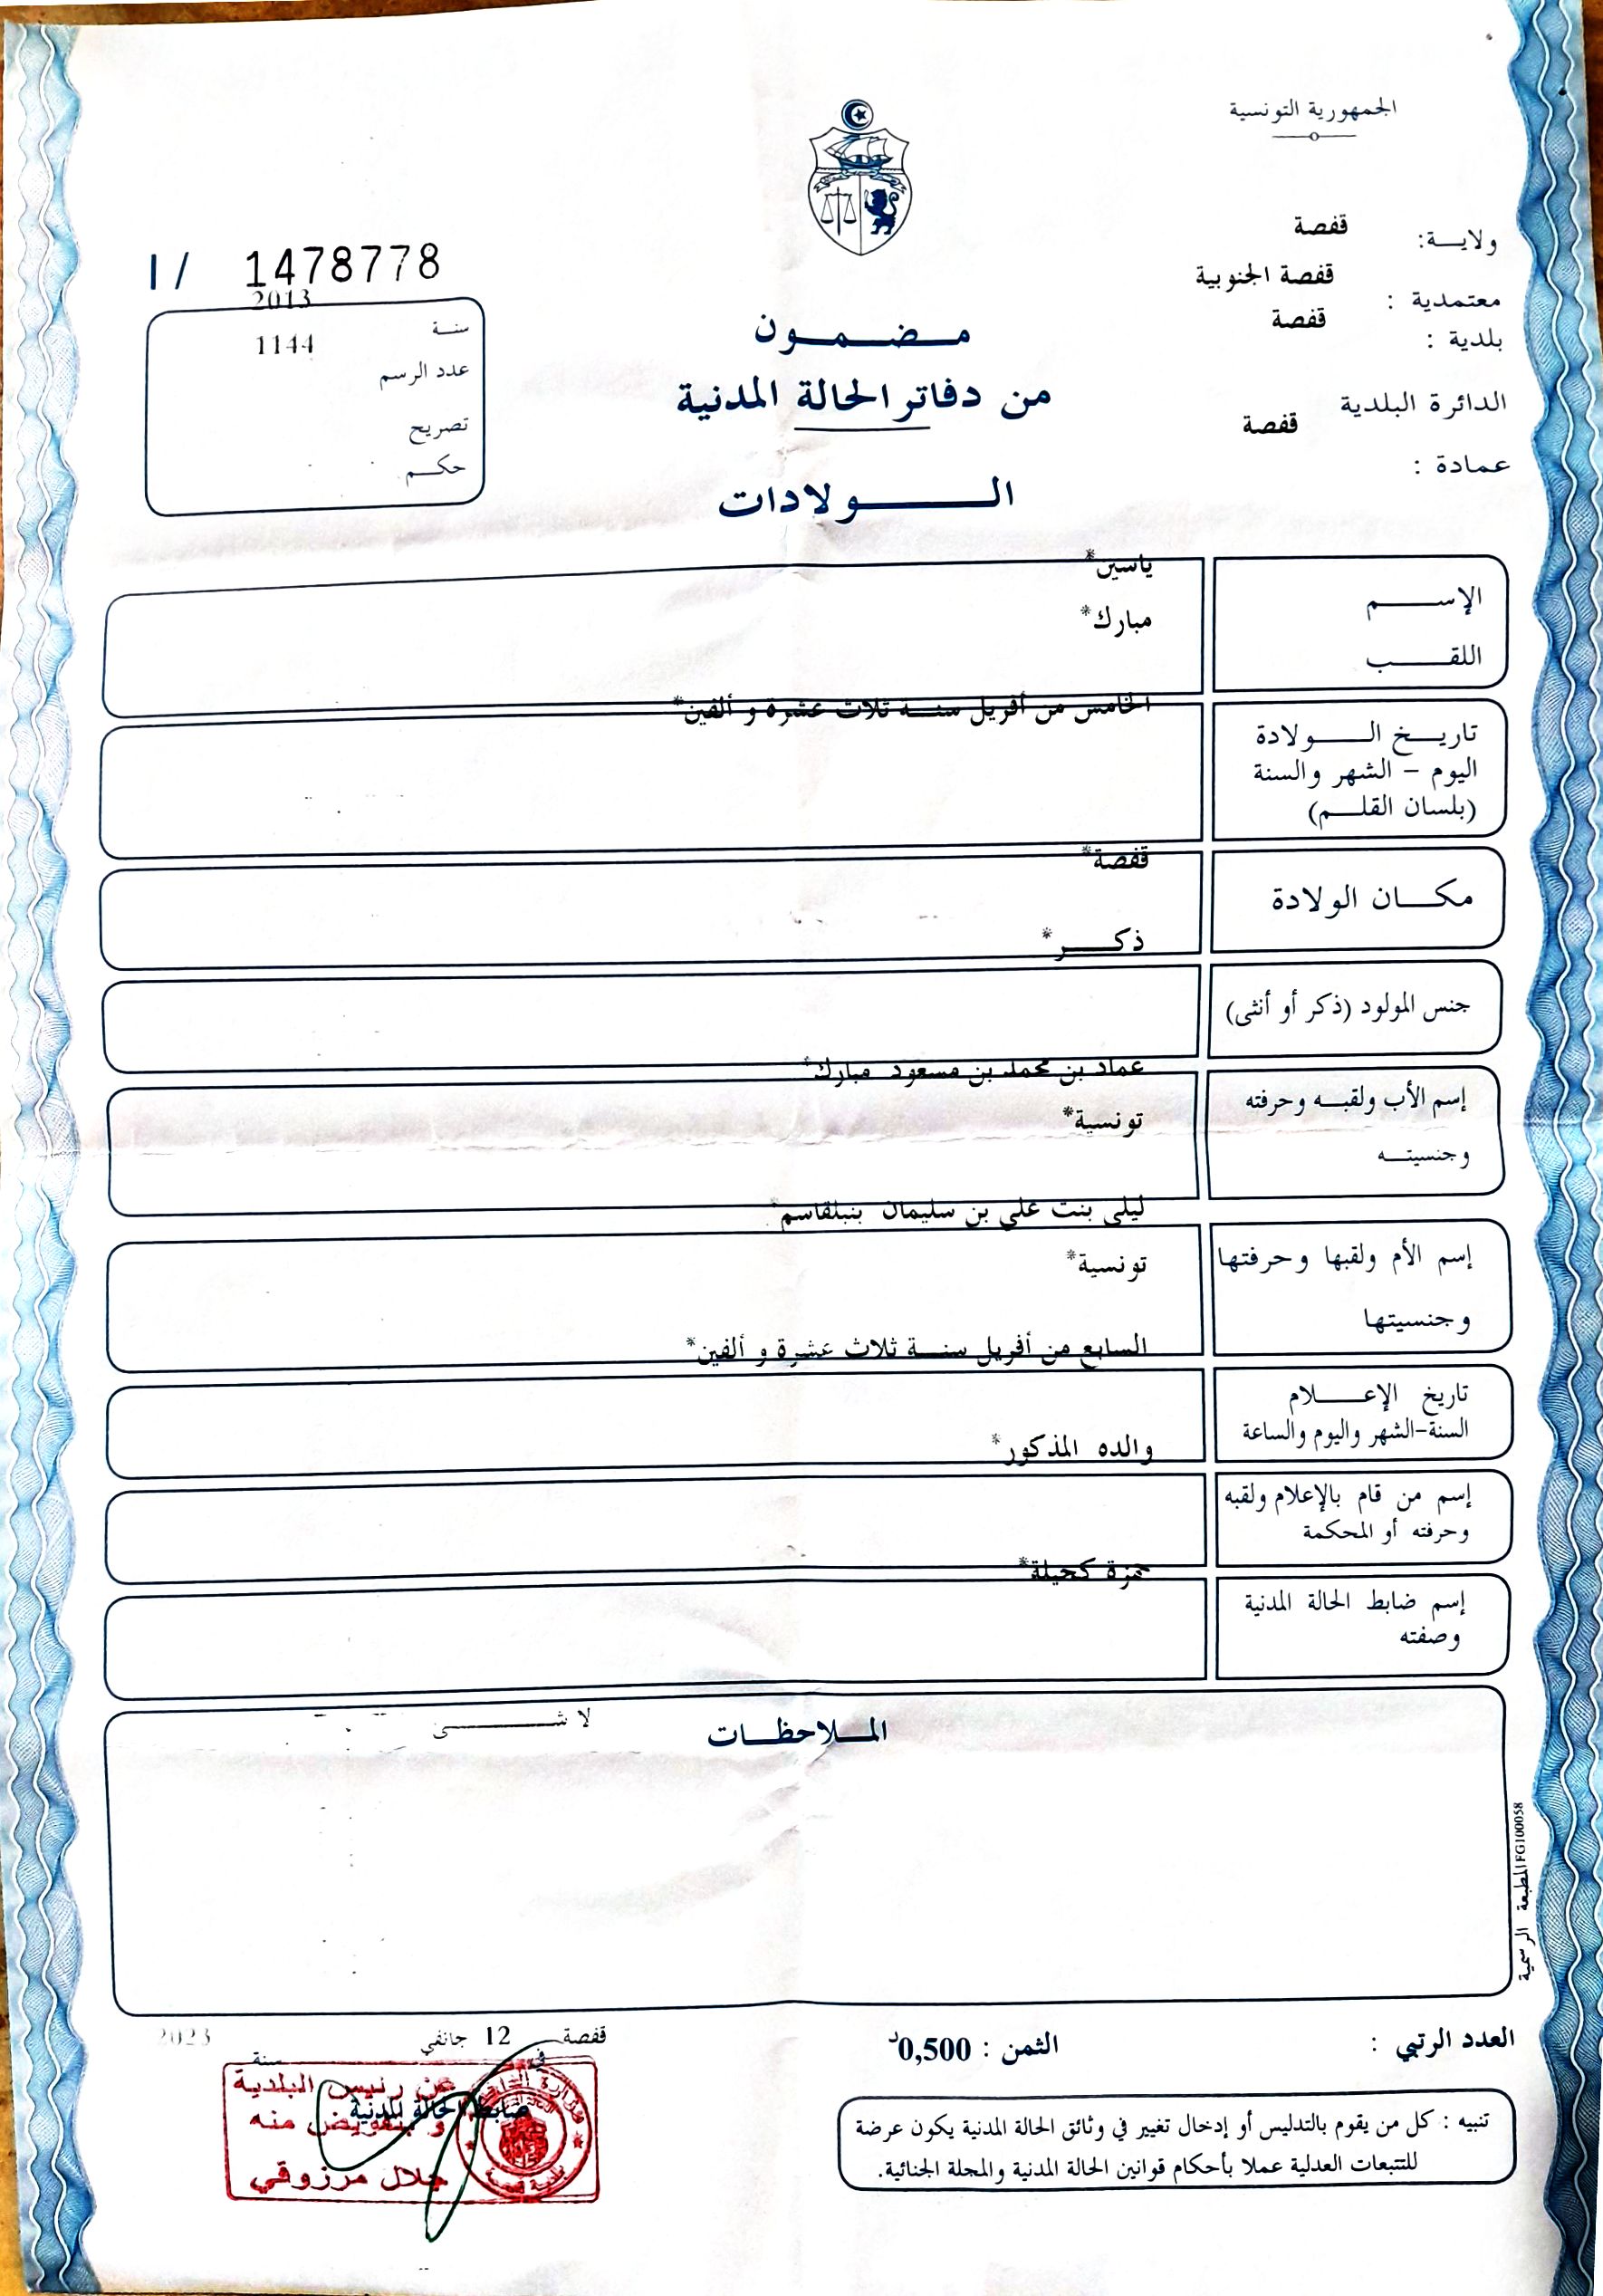 الجمهورية التونسية
ولاية: قفصة
معتمدية : قفصة الجنوبية
بلدية : قفصة
الدائرة البلدية قفصة
عمادة :
مضمون
من دفاتر الحالة المدنية
الولادات
I / 1478778
سنة 2013
عدد الرسم 1144
تصريح
حكم
الإسم ياسين*
اللقب مبارك*
تاريخ الولادة الخامس من أفريل سنة ثلاث عشرة و ألفين*
اليوم - الشهر والسنة
(بلسان القلم)
مكان الولادة قفصة*
جنس المولود (ذكر أو أنثى) ذكر*
إسم الأب ولقبه وحرفته عماد بن محمد بن مسعود مبارك*
وجنسيته تونسية*
إسم الأم ولقبها وحرفتها ليلى بنت علي بن سليمان بنبلقاسم*
وجنسيتها تونسية*
تاريخ الإعلام السابع من أفريل سنة ثلاث عشرة و ألفين*
السنة-الشهر واليوم والساعة
إسم من قام بالإعلام ولقبه والده المذكور*
وحرفته أو المحكمة
إسم ضابط الحالة المدنية حمزة كحيلة*
وصفته
الملاحظات لا شى
المطبعة الرسمية FG100058
العدد الرتبي :
الثمن : 0,500د
قفصة في 12 جانفي سنة 2023
ضابط الحالة المدنية
عن رئيس البلدية
و بتفويض منه
جلال مرزوقي
تنبيه : كل من يقوم بالتدليس أو إدخال تغيير في وثائق الحالة المدنية يكون عرضة
للتتبعات العدلية عملا بأحكام قوانين الحالة المدنية والمجلة الجنائية.